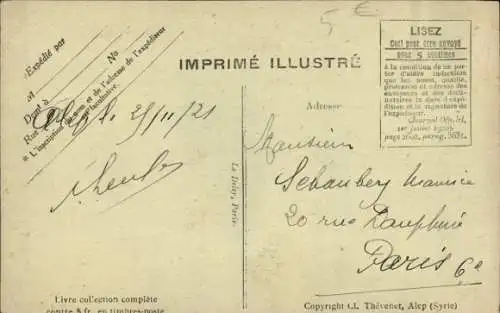 5 €
Expédié par
No
et
Dont à
Rue
* L'inscription du nom et de l'adresse de l'expéditeur
est facultative.
Alep le 25/11/21
IMPRIMÉ ILLUSTRÉ
LISEZ
Ceci peut être envoyé
avec 5 centimes
à la condition de ne porter d'autre indication
que les noms, qualité,
profession et adresse des
envoyeurs et des destinataires
la date d'expédition et la signature de
l'expéditeur.
Journal Offic.iel,
Adresse:
Monsieur
Schauberg Maurice
20 rue Dauphine
Paris 6e
Le Deley, Paris.
Livre collection complète
contre 8 fr. en timbres-poste
Copyright Cl. Thévenet, Alep (Syrie)